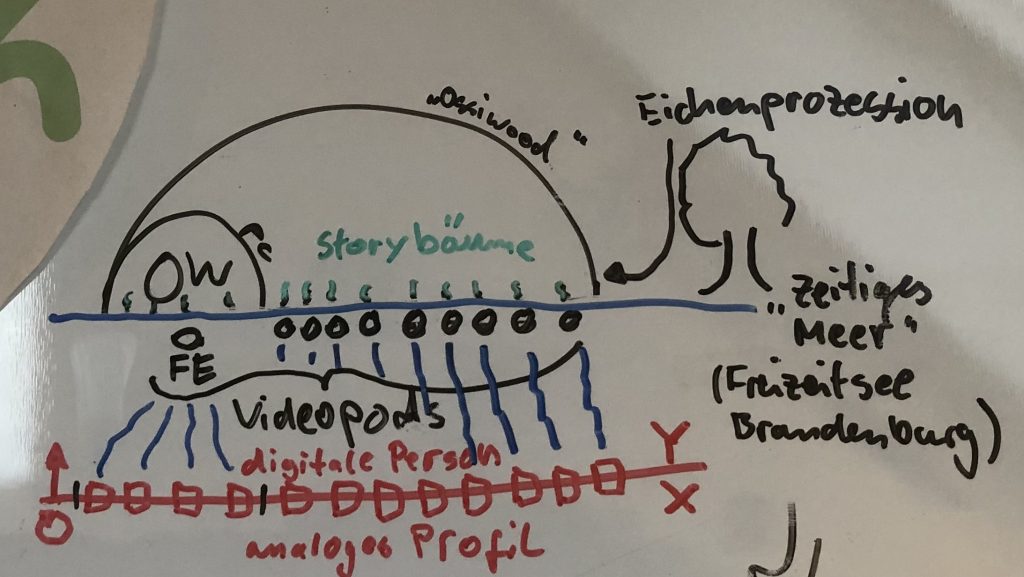 „Ossiwood“
Eichenprozession
OW
Storybäume
„Zeitiges
Meer“
(Freizeitsee
Brandenburg)
FE
Videopods
digitale Person
Y
O
X
analoges Profil